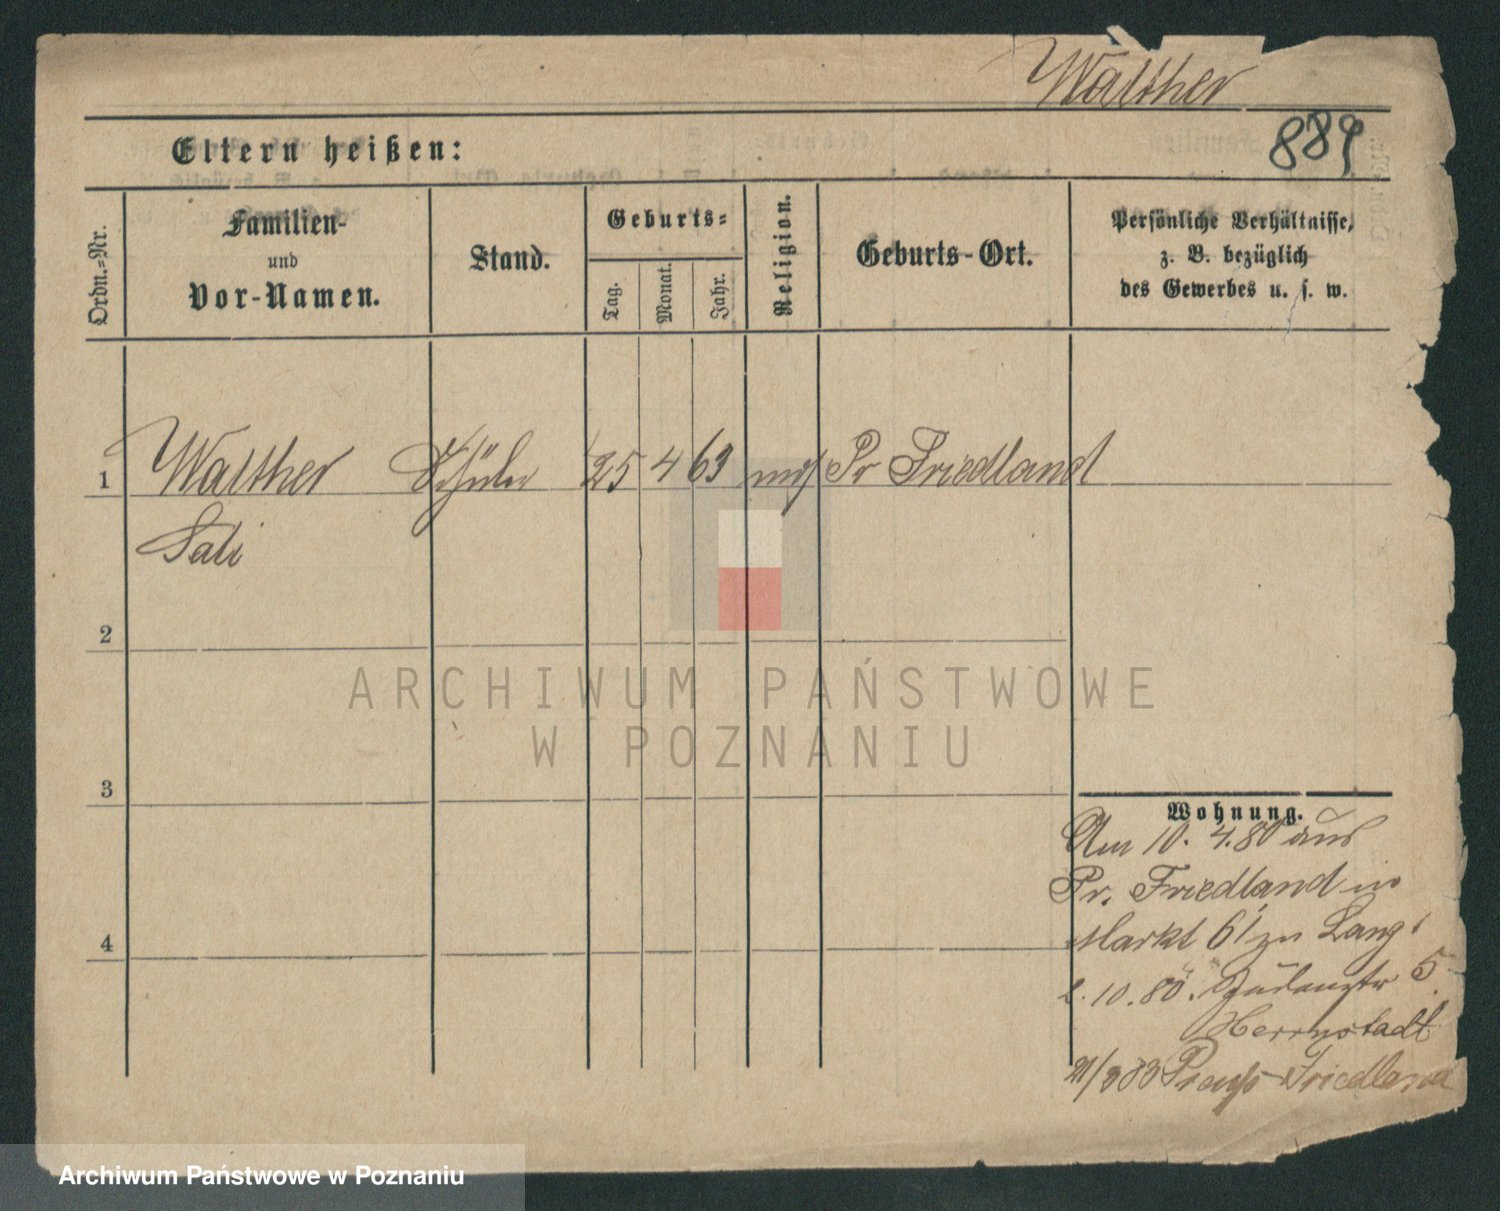 Walther
889
Eltern heißen:
Ordn.-Nr.
Familien-
und
Vor-Namen.
Stand.
Geburts-
Tag.
Monat.
Jahr.
Religion.
Geburts-Ort.
Persönliche Verhältnisse,
z. B. bezüglich
des Gewerbes u. s. w.
1 Walther Schüler 25 4 63 mos Pr Friedland
Sali
2
3
4
Wohnung.
Am 10. 4. 80 aus
Pr. Friedland in
Markt 61 zu Lang
2. 10. 80. Judenstr 5
Herrnstadt
21/3 83 Preuß-Friedland
ARCHIWUM PAŃSTWOWE
W POZNANIU
Archiwum Państwowe w Poznaniu